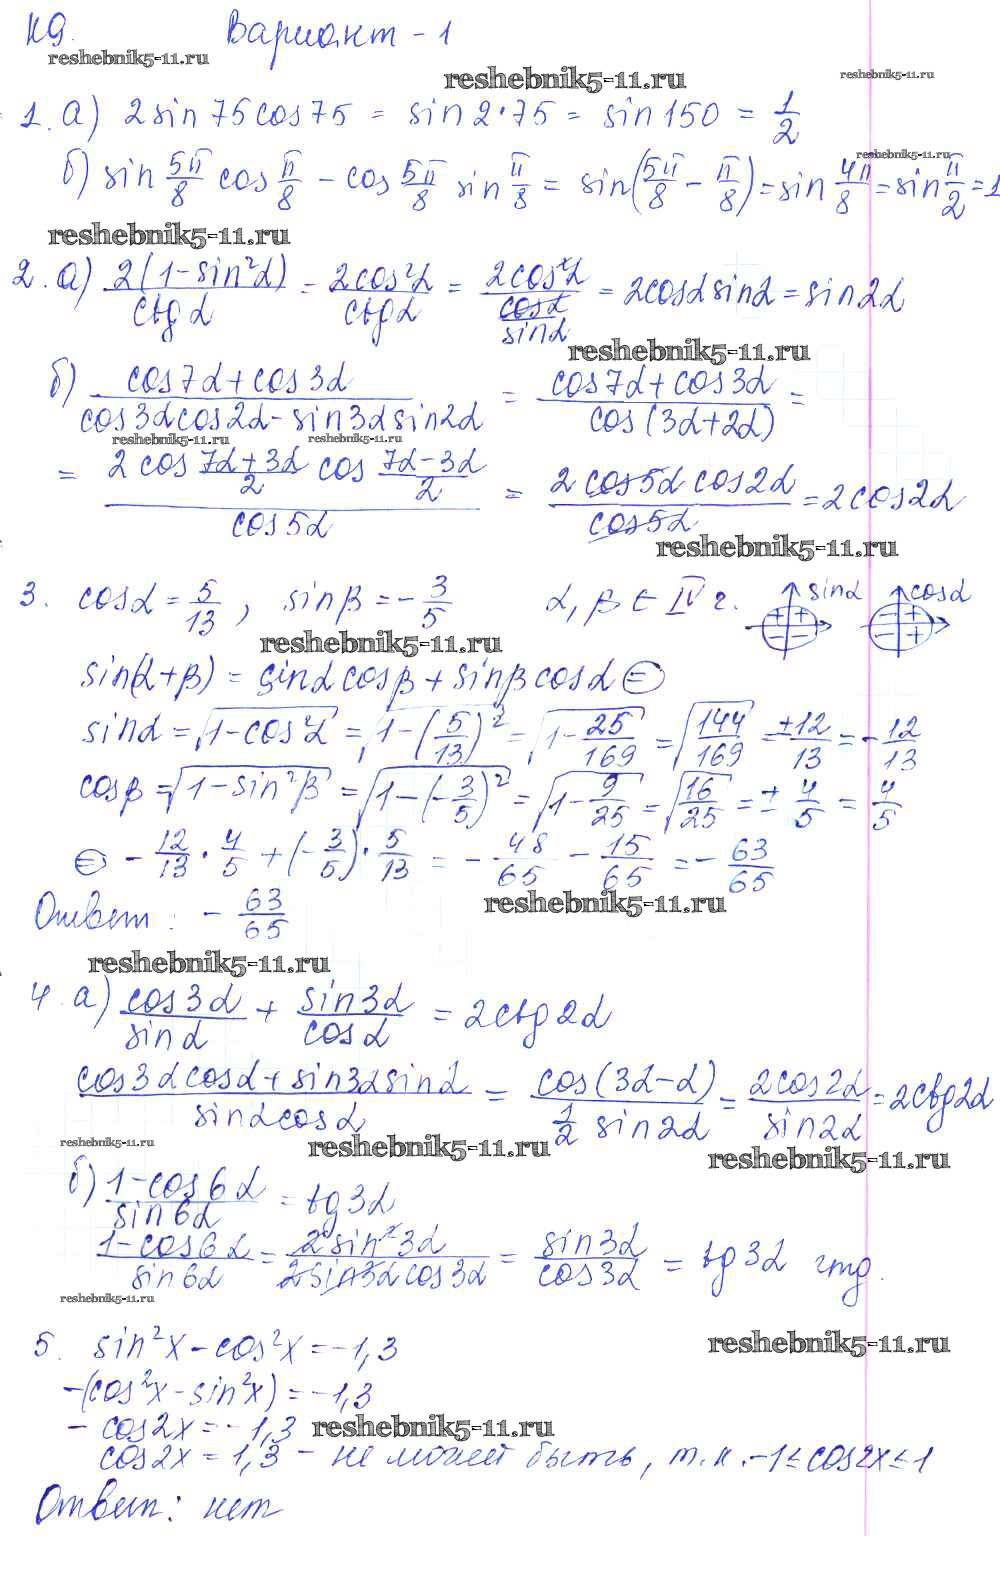 К9. Вариант - 1
reshebnik5-11.ru
reshebnik5-11.ru reshebnik5-11.ru
1. а) 2 sin 75 cos 75 = sin 2·75 = sin 150 = 1/2
reshebnik5-11.ru
б) sin 5π/8 cos π/8 - cos 5π/8 sin π/8 = sin(5π/8 - π/8) = sin 4π/8 = sin π/2 = 1
reshebnik5-11.ru
2. а) 2(1-sin²α)/ctg α = 2cos²α/ctg α = 2cos²α/(cosα/sinα) = 2cosα sinα = sin2α
reshebnik5-11.ru
б) (cos7α + cos3α)/(cos3α cos2α - sin3α sin2α) = (cos7α + cos3α)/cos(3α+2α) =
reshebnik5-11.ru reshebnik5-11.ru
= (2 cos (7α+3α)/2 cos (7α-3α)/2)/cos5α = 2 cos5α cos2α/cos5α = 2cos2α
reshebnik5-11.ru
3. cosα = 5/13, sinβ = -3/5 α, β ∈ IV г. sinα cosα
reshebnik5-11.ru
sin(α+β) = sinα cosβ + sinβ cosα ⊜
sinα = √(1-cos²α) = √(1-(5/13)²) = √(1-25/169) = √(144/169) = ±12/13 = -12/13
cosβ = √(1-sin²β) = √(1-(-3/5)²) = √(1-9/25) = √(16/25) = ± 4/5 = 4/5
⊜ - 12/13 · 4/5 + (-3/5) · 5/13 = - 48/65 - 15/65 = - 63/65
Ответ: - 63/65
reshebnik5-11.ru
reshebnik5-11.ru
4. а) cos3α/sinα + sin3α/cosα = 2ctg2α
(cos3α cosα + sin3α sinα)/(sinα cosα) = cos(3α-α)/(1/2 sin2α) = 2cos2α/sin2α = 2ctg2α
reshebnik5-11.ru reshebnik5-11.ru reshebnik5-11.ru
б) (1-cos6α)/sin6α = tg3α
(1-cos6α)/sin6α = 2sin²3α/(2sin3α cos3α) = sin3α/cos3α = tg3α чтд.
reshebnik5-11.ru
5. sin²x - cos²x = -1,3
reshebnik5-11.ru
-(cos²x - sin²x) = -1,3
- cos2x = -1,3
reshebnik5-11.ru
cos2x = 1,3 - не может быть, т.к. -1 ≤ cos2x ≤ 1
Ответ: нет